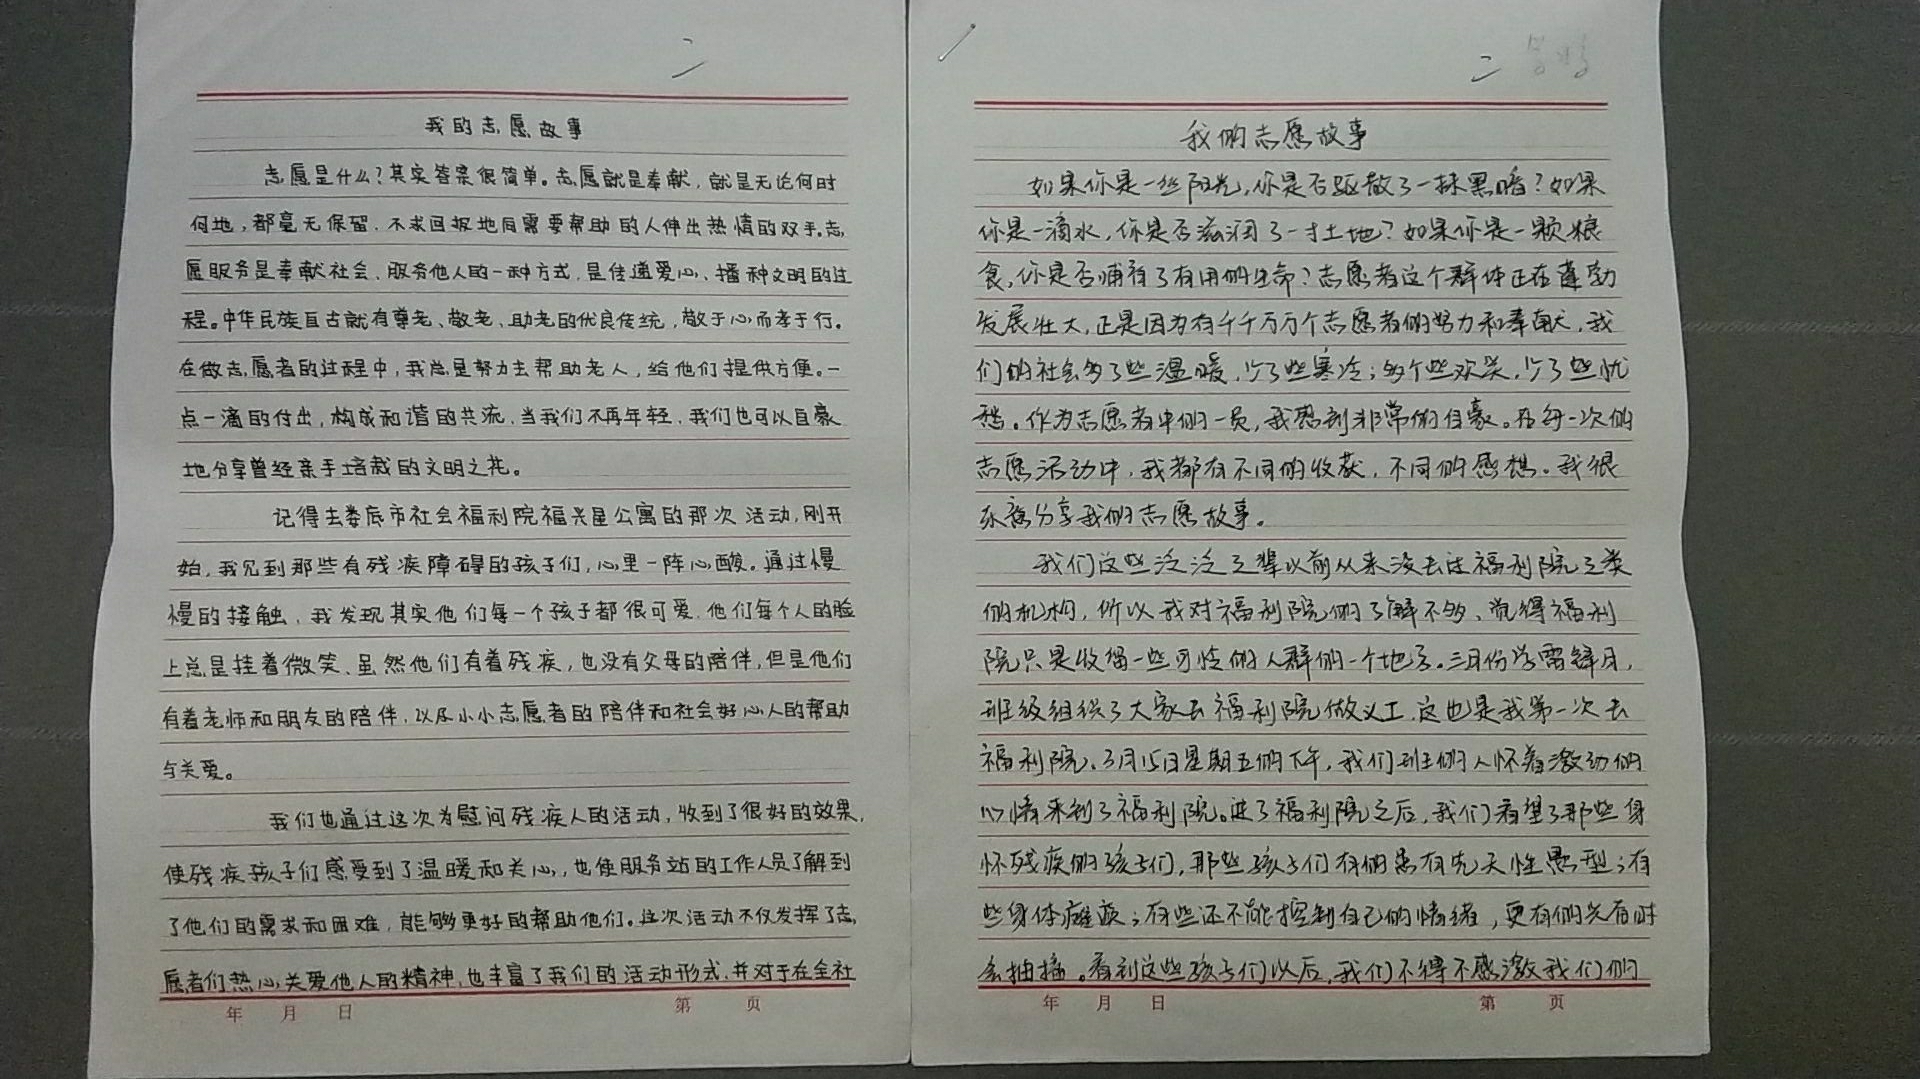 二
我的志愿故事
志愿是什么?其实答案很简单。志愿就是奉献,就是无论何时
何地,都毫无保留、不求回报地向需要帮助的人伸出热情的双手。志
愿服务是奉献社会、服务他人的一种方式,是传递爱心、播种文明的过
程。中华民族自古就有尊老、敬老、助老的优良传统,敬于心而孝于行。
在做志愿者的过程中,我总是努力去帮助老人,给他们提供方便。一
点一滴的付出,构成和谐的共流,当我们不再年轻,我们也可以自豪
地分享曾经亲手培栽的文明之花。
记得去娄底市社会福利院福兴星公寓的那次活动,刚开
始,我见到那些有残疾障碍的孩子们,心里一阵心酸。通过慢
慢的接触,我发现其实他们每一个孩子都很可爱,他们每个人的脸
上总是挂着微笑、虽然他们有着残疾,也没有父母的陪伴,但是他们
有着老师和朋友的陪伴,以及小小志愿者的陪伴和社会好心人的帮助
与关爱。
我们也通过这次为慰问残疾人的活动,收到了很好的效果,
使残疾孩子们感受到了温暖和关心,也使服务站的工作人员了解到
了他们的需求和困难,能够更好的帮助他们。这次活动不仅发挥了志
愿者们热心关爱他人的精神,也丰富了我们的活动形式,并对于在全社
年 月 日 第 页
二
我的志愿故事
如果你是一丝阳光,你是否驱散了一抹黑暗?如果
你是一滴水,你是否滋润了一寸土地?如果你是一颗粮
食,你是否哺育了有用的生命?志愿者这个群体正在蓬勃
发展壮大,正是因为有千千万万个志愿者的努力和奉献,我
们的社会多了些温暖,少了些寒冷;多个些欢笑,少了些忧
愁。作为志愿者中的一员,我感到非常的自豪。在每一次的
志愿活动中,我都有不同的收获,不同的感想。我很
乐意分享我的志愿故事。
我们这些泛泛之辈以前从来没去过福利院之类
的机构,所以我对福利院的了解不多、觉得福利
院只是收留一些可怜的人群的一个地方。三月份学雷锋月,
班级组织了大家去福利院做义工,这也是我第一次去
福利院。3月15日星期五的下午,我们班的人怀着激动的
心情来到了福利院。进了福利院之后,我们看望了那些身
怀残疾的孩子们,那些孩子们有的患有先天性愚型;有
些身体瘫痪;有些还不能控制自己的情绪,更有的头有时
会抽搐。看到这些孩子们以后,我们不得不感激我们的
年 月 日 第 页